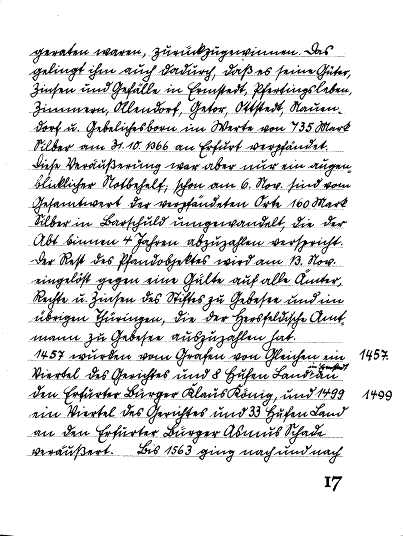 geraten waren, zurückzugewinnen. Das
gelingt ihm auch dadurch, daß es seine Güter,
Zinsen und Gefälle in Ermstedt, Pferdingsleben,
Zimmern, Ollendorf, Ottstedt, Nauen-
dorf u. Gebelichesborn im Werte von 735 Mark
Silber am 31.10.1366 an Erfurt verpfändet.
Diese Veräußerung war aber nur ein augen-
blicklicher Notbehelf, schon am 6. Nov. sind vom
Gesamtwert der verpfändeten Orte 160 Mark
Silber in Barschuld umgewandelt, die der
Abt binnen 4 Jahren abzuzahlen verspricht.
Der Rest des Pfandobjektes wird am 13. Nov.
eingelöst gegen eine Gülte auf alle Ämter,
Rechte u. Zinsen des Stiftes zu Gebesee und im
übrigen Thüringen, die der Hersfeldische Amt-
mann zu Gebesee auszuzahlen hat.
1457 wurden vom Grafen von Gleichen ein 1457
Viertel des Gerichtes und 8 Hufen Land an
den Erfurter Bürger Klaus König, und 1499 1499
ein Viertel des Gerichtes und 33 Hufen Land
an den Erfurter Bürger Asmus Schade
veräußert. Bis 1563 ging nach und nach
17